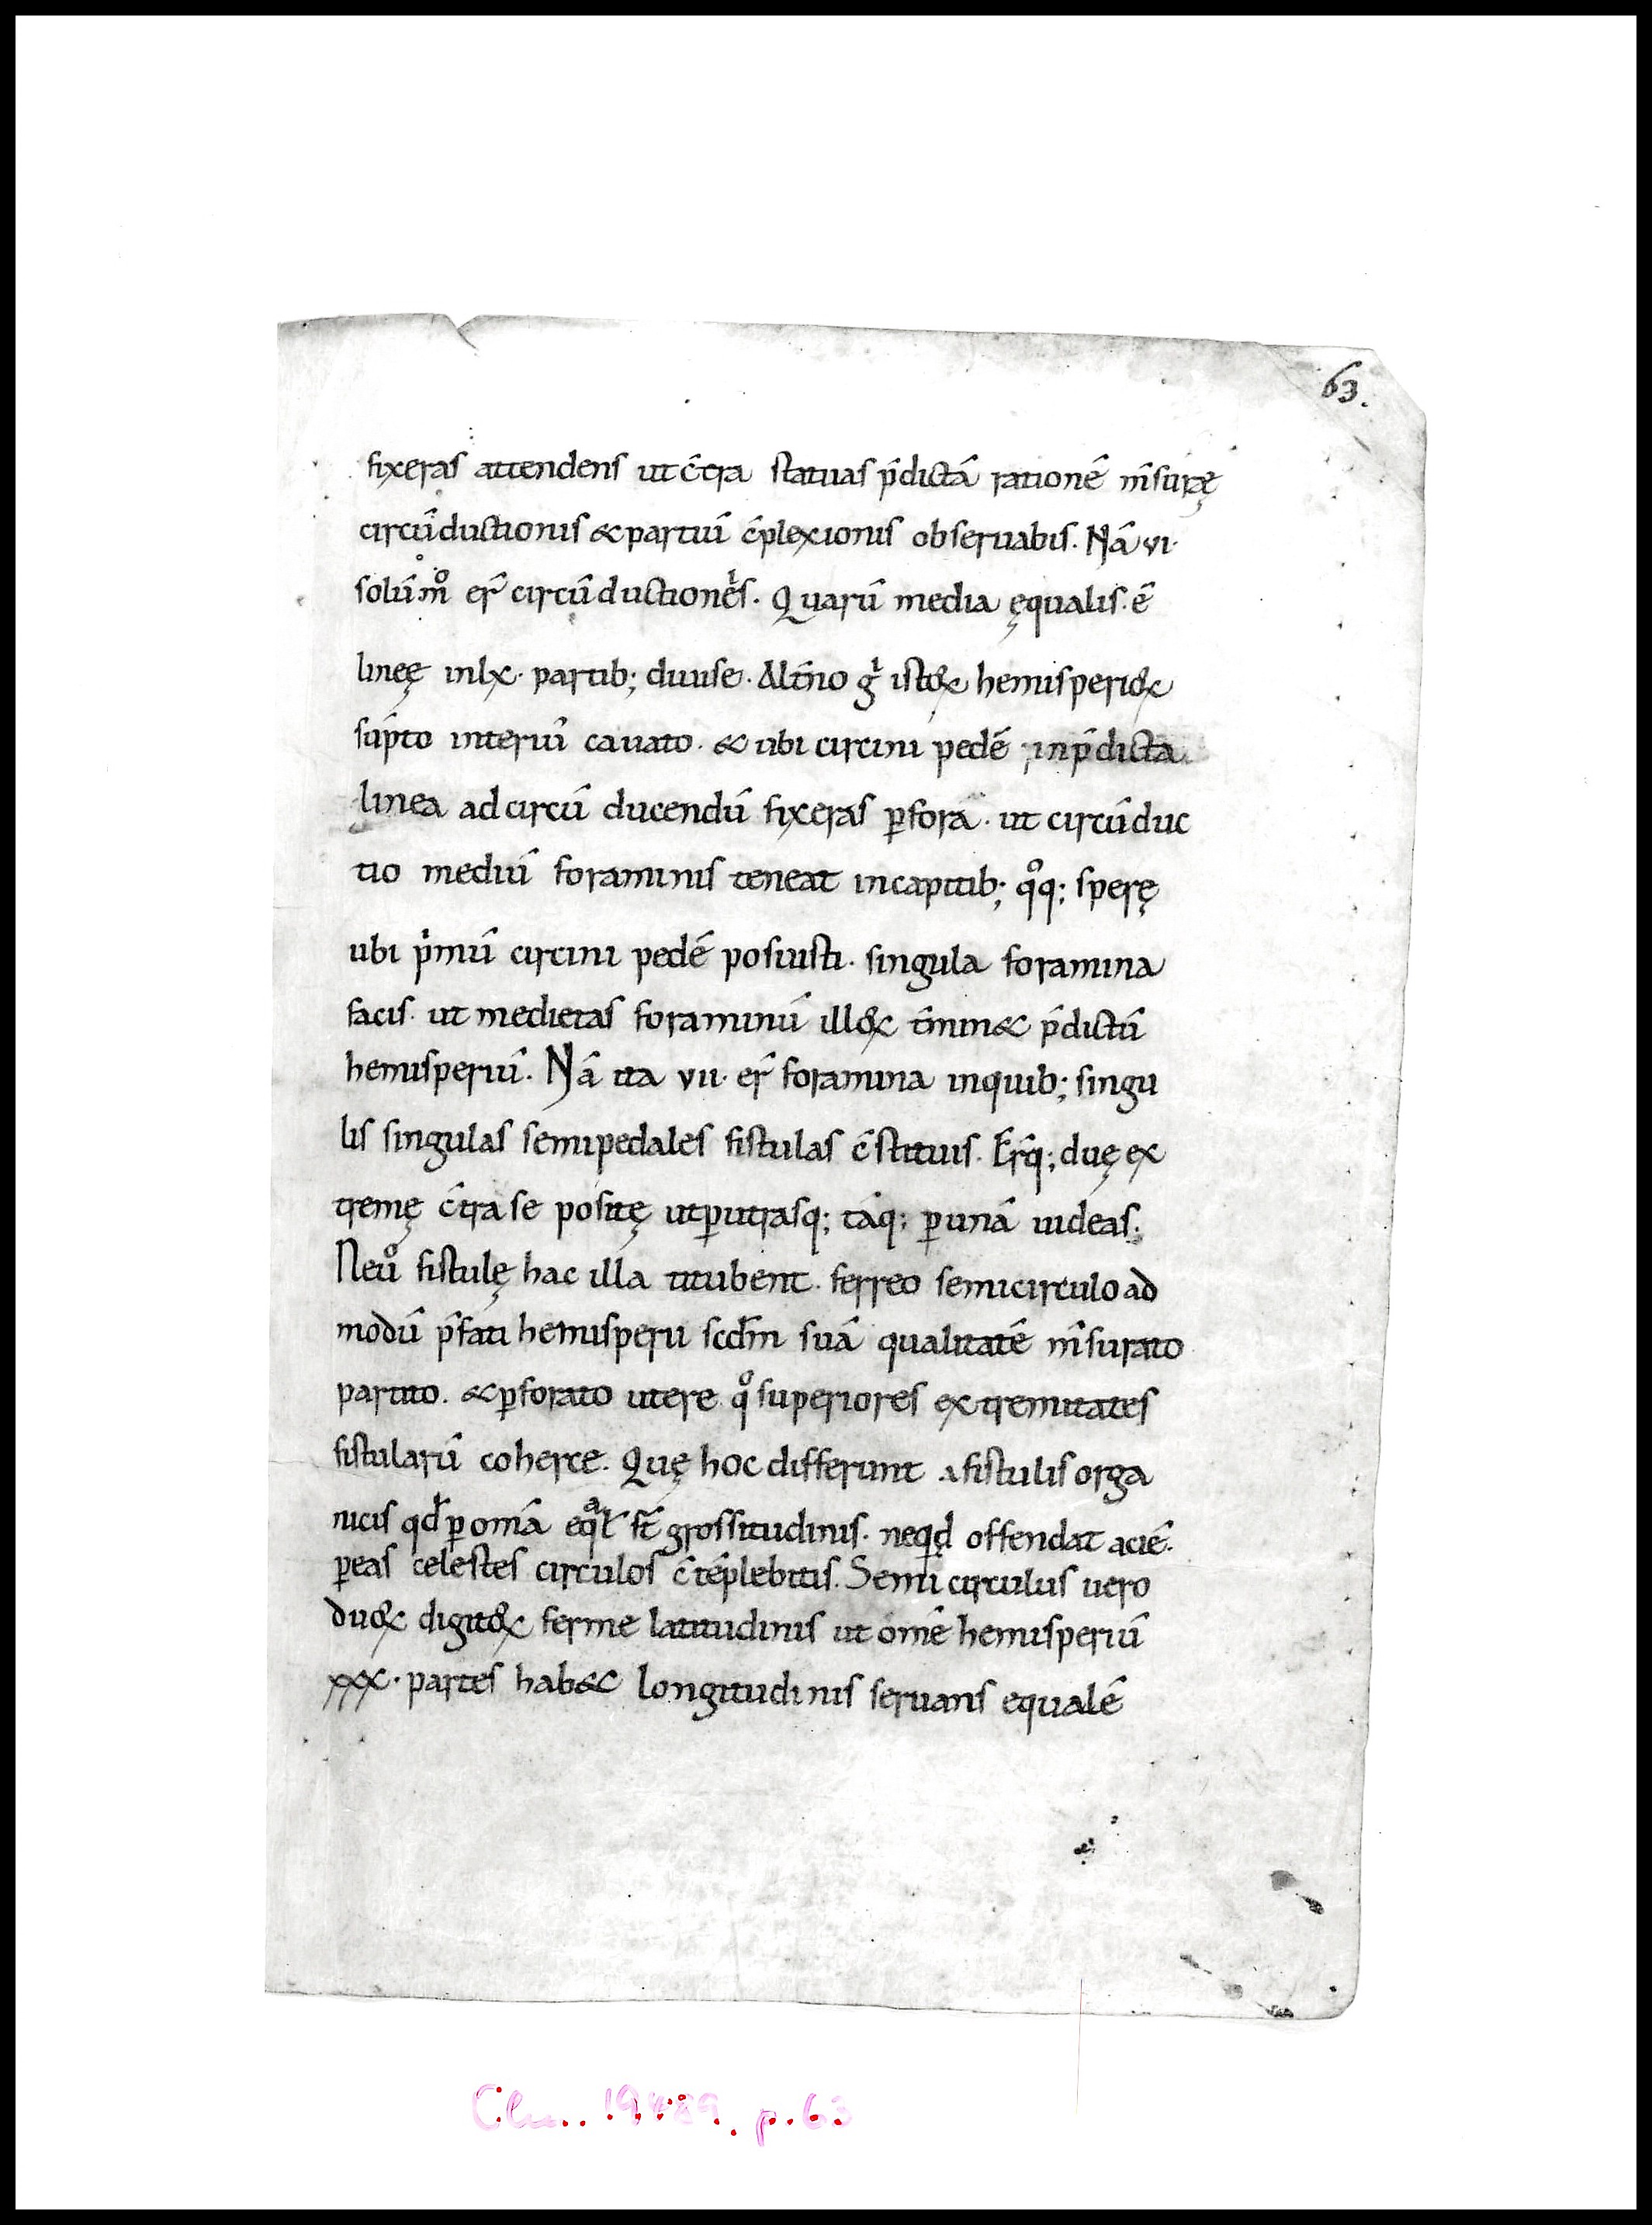 63.
fixeras attendens ut c̄tra statuas p̄dictā rationē m̄surę
circūductionis & partiū c̄plexionis obseruabis. Nā vi·
solūmͦ er̄ circūductiones. Quarū media ęqualis·ē
lineę inlx· partib; diuise. Alt̄no gͥ istoꝝ hemisperioꝝ
sūpto interiꝰ cauato· & ubi circini pedē inp̄dicta
linea ad circū ducendū fixeras ꝑfora· ut circūduc
tio mediū foraminis teneat incapitib; qͦq; sperę
ubi pͥmū circini pedē posuisti· singula foramina
facis· ut medietas foraminū illoꝝ t̄min& p̄dictū
hemisperiū. Nā ita vii· er̄ foramina inquib; singu
lis singulas semipedales fistulas c̄stituis. Er̄q; duę ex
tremę c̄tra se positę utꝑutrasq; tāq; ꝑunā uideas.
Neuͦ fistulę hac illa titubent· ferreo semicirculo ad
modū p̄fati hemisperii scdm̄ suā qualitatē m̄surato
partito· & ꝑforato utere qͦ superiores extremitates
fistularū coherce. Quę hoc differunt a fistulis orga
nicis qđ ꝑ omā eqͣł st̄ grossitudinis· neqͥd offendat aciē·
ꝑeas celestes circulos c̄tēplebitis. Semi circulus uero
duoꝝ digitoꝝ ferme latitudinis ut omē hemisperiū
xxx· partes hab& longitudinis seruans equalē
Clm. 19489. p. 63